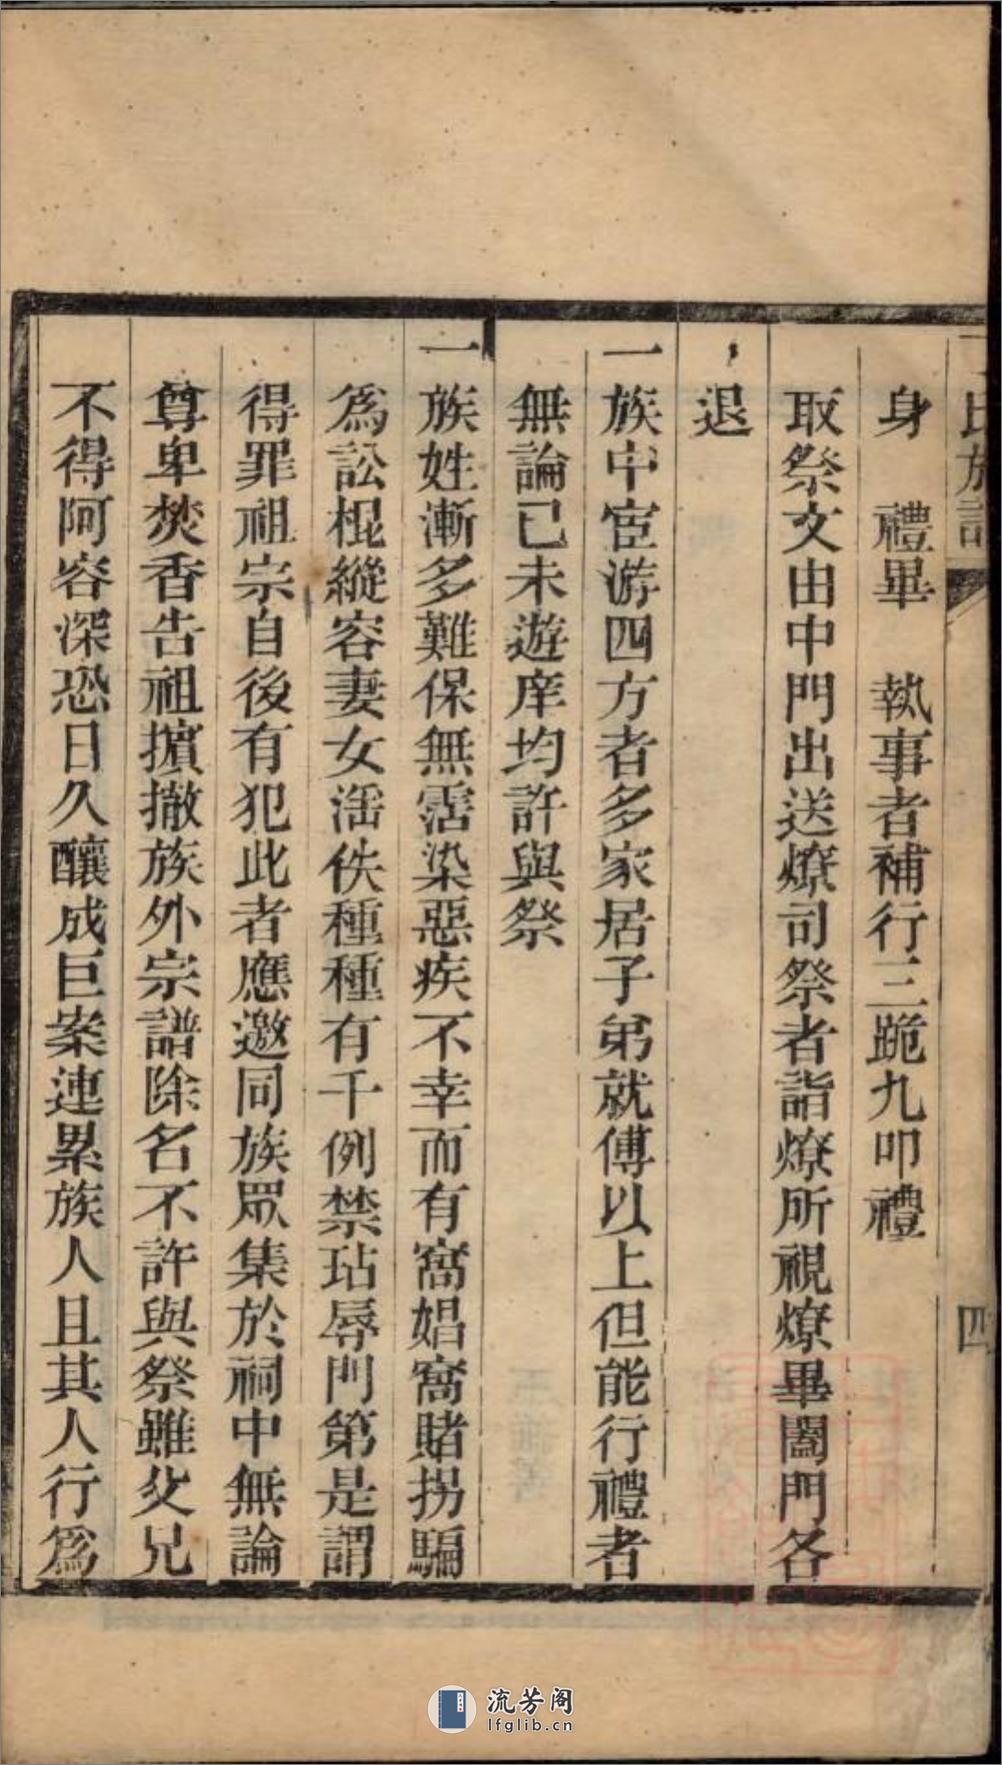 氏族譜
四
身　禮畢　執事者補行三跪九叩禮
取祭文由中門出送燎司祭者詣燎所視燎畢闔門各
退
一族中宦游四方者多家居子弟就傅以上但能行禮者
無論已未遊庠均許與祭
一族姓漸多難保無霑染惡疾不幸而有窩娼窩賭拐騙
為訟棍縱容妻女淫佚種種有干例禁玷辱門第是謂
得罪祖宗自後有犯此者應邀同族眾集於祠中無論
尊卑焚香告祖擯撤族外宗譜除名不許與祭雖父兄
不得阿容深恐日久釀成巨案連累族人且其人行為
流芳阁
lfglib.cn